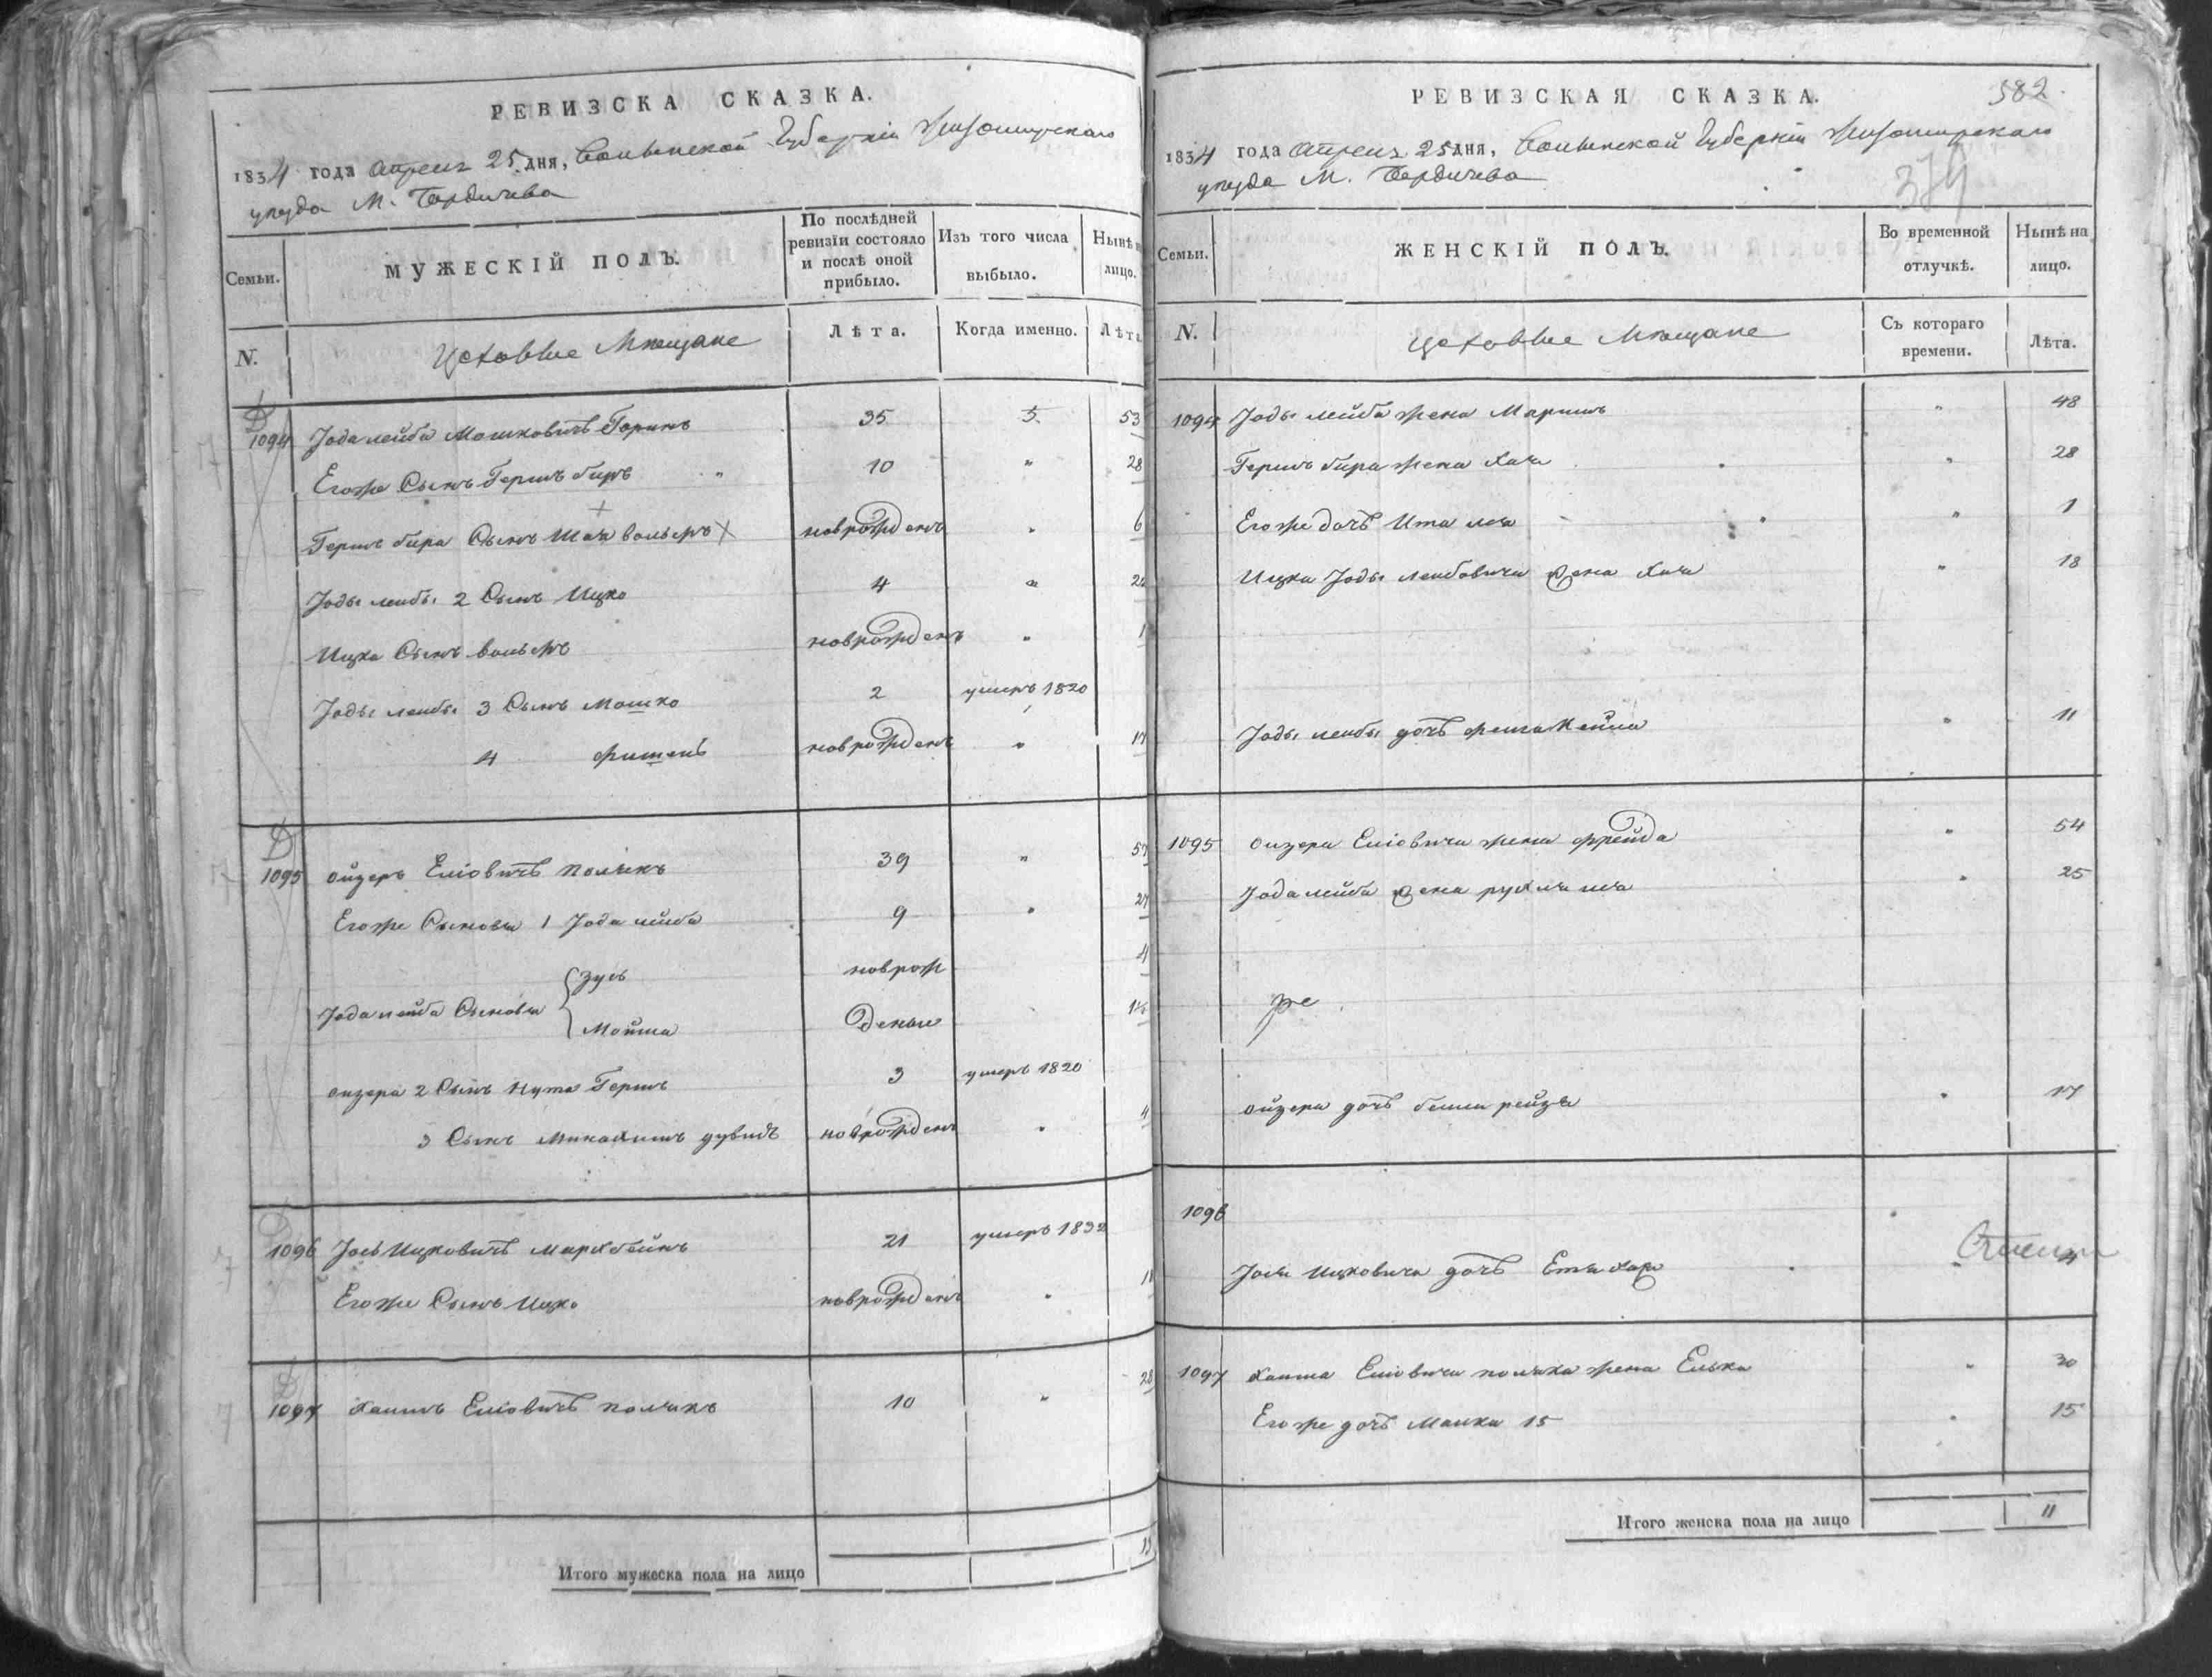 РЕВИЗСКА СКАЗКА.
1834 года Апреля 25 дня, Волынской Губерніи Житомирскаго
уезда М. Бердичева
Семьи.
МУЖЕСКІЙ ПОЛЪ.
По послѣдней
ревизіи состояло
и послѣ оной
прибыло.
Изъ того числа
выбыло.
Нынѣ
лицо.
N.
Цеховые Мещане
Лѣта.
Когда именно.
Лѣта
1094 Іода лейба Мошковичъ 35 53
Егоже Сынъ Гершъ беръ 10 " 28
Гершъ бера Сынъ вольфъ новрожденъ " 6
Іоды лейбы 2 Сынъ Ицко 4 "
Ицка Сынъ вольфъ новрожденъ " 1
Іоды лейбы 3 Сынъ Мошко 2 умеръ 1820
4 фишель новрожденъ "
1095 Ойзеръ Еліовичъ Полякъ 39 "
Егоже Сыновья 1 Іода лейба 9 "
Зусь новрож 4
Іода лейба Сыновья
Мойша деные
Ойзера 2 Сынъ Нута Гершъ 3 умеръ 1820
3 Сынъ дувидъ новрожденъ " 4
1096 Іось Ицковичъ 21 умеръ 1832
Егоже Сынъ Ицко новрожденъ " 11
1097 Хаимъ Еліовичъ Полякъ 10 " 28
Итого мужеска пола на лицо
РЕВИЗСКАЯ СКАЗКА.
582
1834 года Апреля 25 дня, Волынской Губерніи Житомирскаго
уезда М. Бердичева
Семьи.
ЖЕНСКІЙ ПОЛЪ.
Во временной
отлучкѣ.
Нынѣ на
лицо.
N.
Цеховые Мещане
Съ котораго
времени.
Лѣта.
1094 Іоды лейба жена " 48
Гершъ бера жена Хая " 28
Егоже дочь Ита лея " 1
Ицка Іоды лейбовича жена Хая " 18
Іоды лейбы дочь " 11
1095 Ойзера Еліовича жена фрейда " 54
Іода лейба жена рухля лея " 25
Ойзера дочь рейзя " 17
1096
Іося Ицковича дочь " 4
1097 Хаима Еліовича поляка жена Елька " 30
Егоже дочь Малка 15 " 15
Итого женска пола на лицо 11